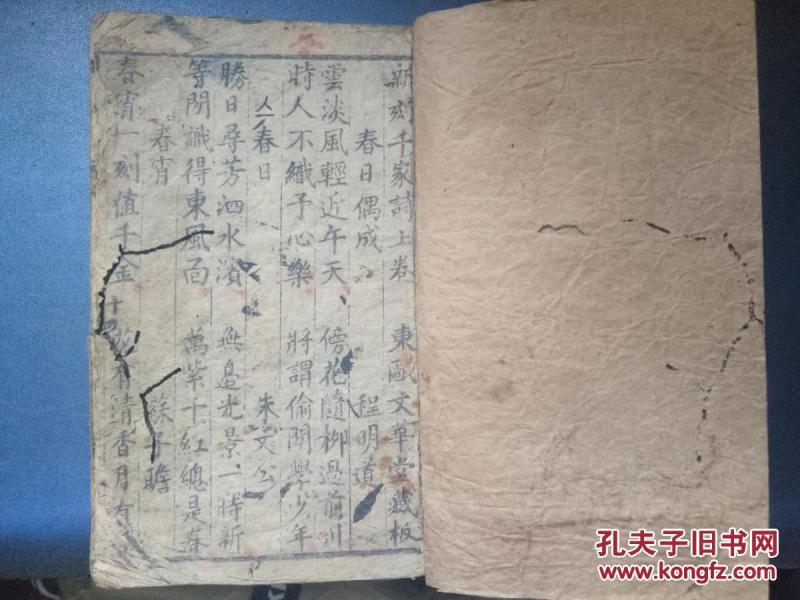 新刻千家詩上卷 東甌文華堂藏板
春日偶成 程明道
雲淡風輕近午天 傍花隨柳過前川
時人不識予心樂 將謂偷閒學少年
春日 朱文公
勝日尋芳泗水濱 無邊光景一時新
等閒識得東風面 萬紫千紅總是春
春宵 蘇子瞻
春宵一刻值千金 有清香月有
孔夫子旧书网
www.kongfz.com